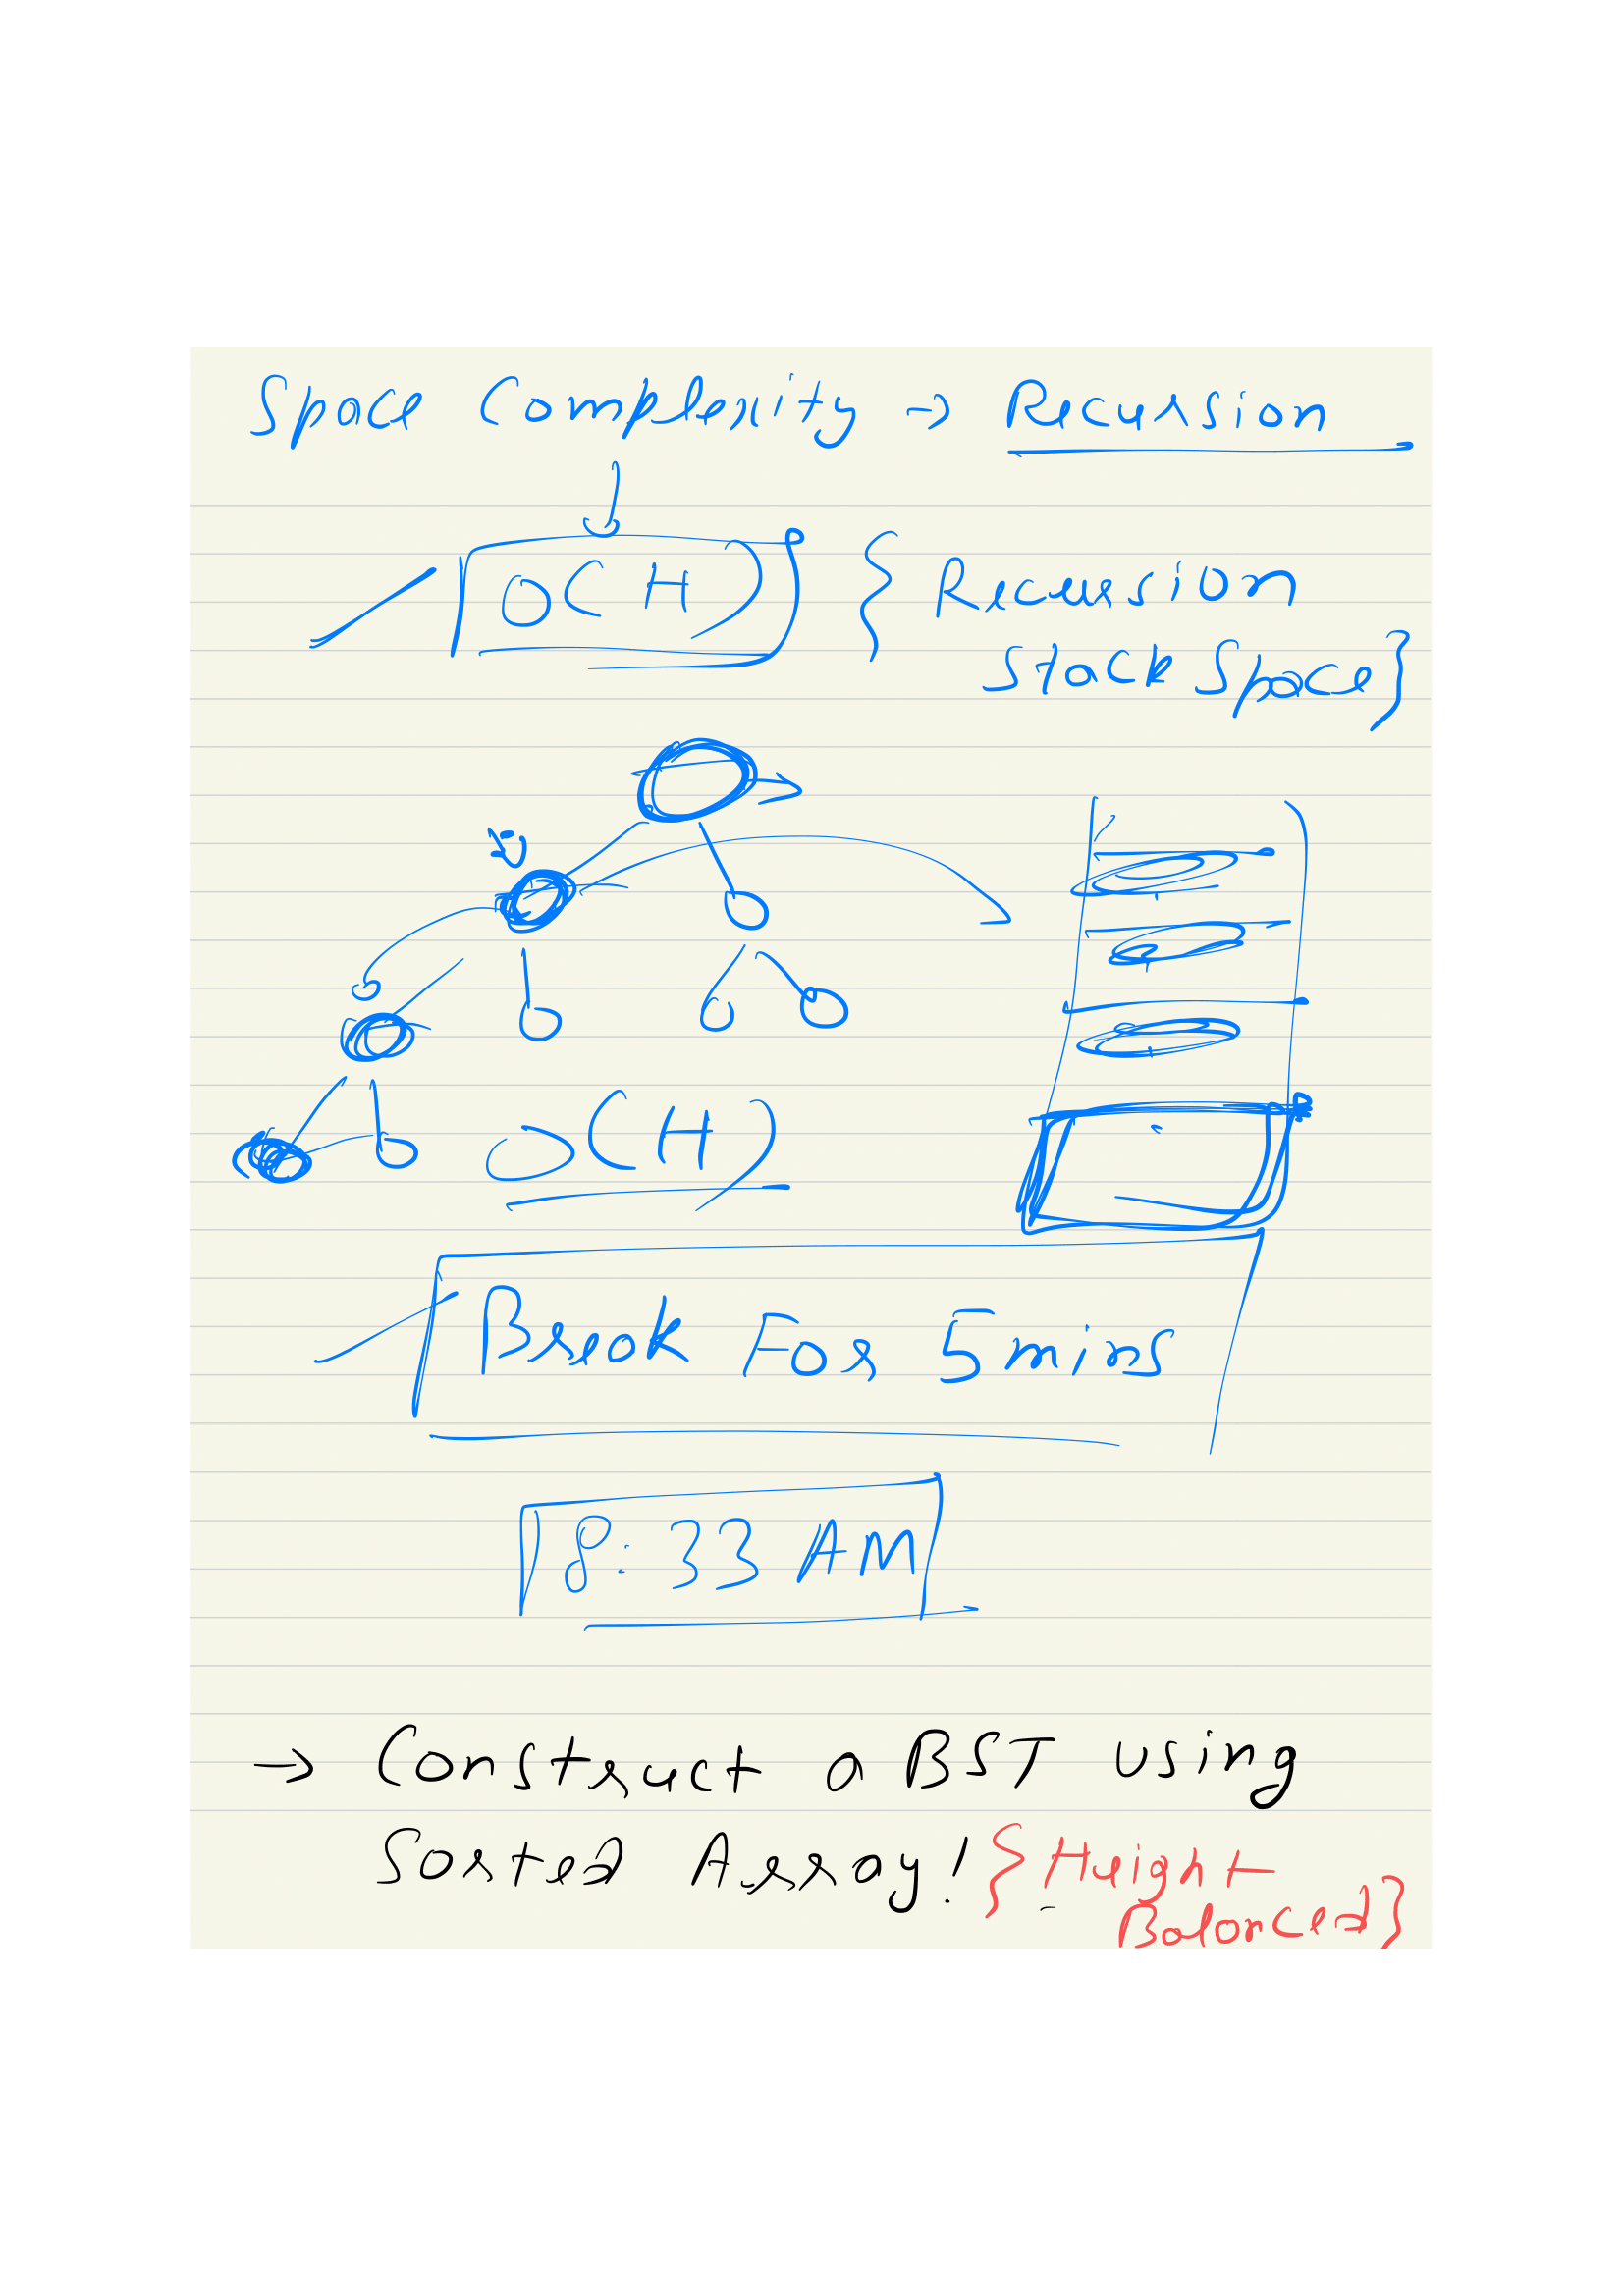 Space Complexity → Recursion
O(H) { Recursion
Stack Space}
O(H)
Break For 5mins
8:33 AM
→ Construct a BST Using
Sorted Array! { Height
Balanced}